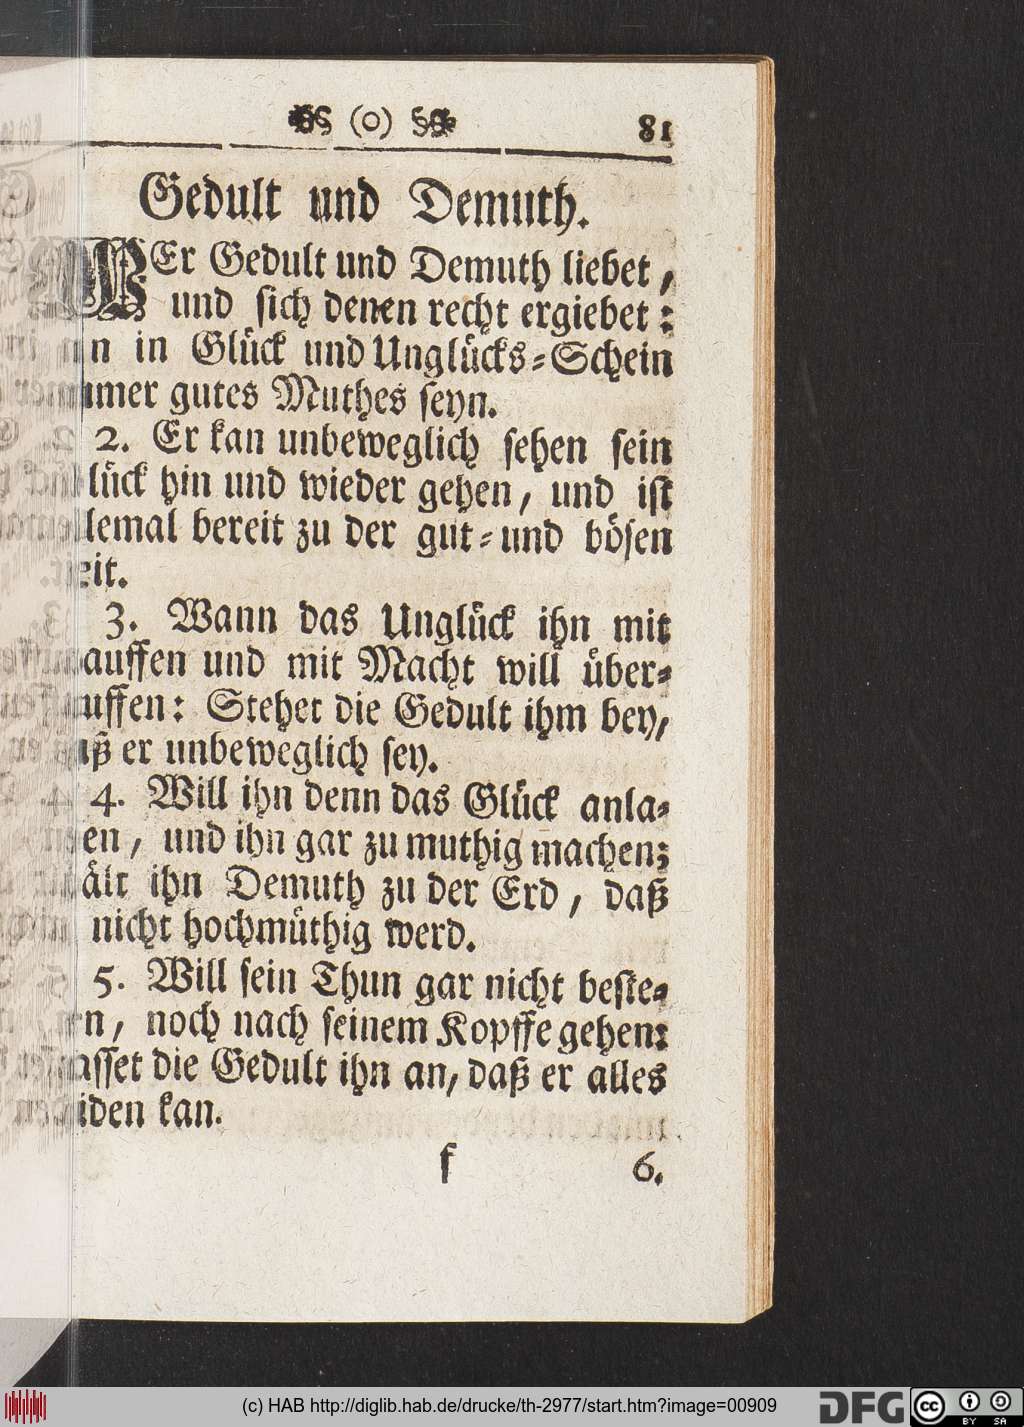 (o) 81
Gedult und Demuth.
WEr Gedult und Demuth liebet,
und sich denen recht ergiebet:
in Glück und Unglücks-Schein
immer gutes Muthes seyn.
2. Er kan unbeweglich sehen sein
lück hin und wieder gehen, und ist
lemal bereit zu der gut- und bösen
eit.
3. Wann das Unglück ihn mit
auffen und mit Macht will über-
uffen: Stehet die Gedult ihm bey,
aß er unbeweglich sey.
4. Will ihn denn das Glück anla-
en, und ihn gar zu muthig machen;
ält ihn Demuth zu der Erd, daß
nicht hochmüthig werd.
5. Will sein Thun gar nicht beste-
n, noch nach seinem Kopffe gehen:
asset die Gedult ihn an, daß er alles
iden kan.
f 6.
(c) HAB http://diglib.hab.de/drucke/th-2977/start.htm?image=00909
DFG
cc BY SA